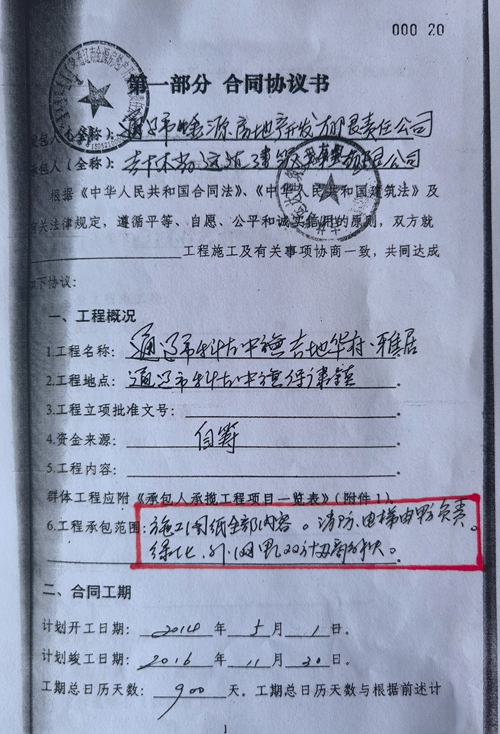 000 20
第一部分 合同协议书
发包人（全称）：通辽市 源房地产开发有限责任公司
承包人（全称）：吉林 建筑 有限公司
根据《中华人民共和国合同法》、《中华人民共和国建筑法》及
有关法律规定，遵循平等、自愿、公平和诚实信用的原则，双方就
工程施工及有关事项协商一致，共同达成
如下协议：
一、工程概况
1.工程名称：通辽市科左中旗吉地华府·雅居
2.工程地点：通辽市科左中旗保康镇
3.工程立项批准文号：
4.资金来源：自筹
5.工程内容：
群体工程应附《承包人承揽工程项目一览表》（附件1）
6.工程承包范围：施工图纸全部内容。消防、电梯由甲方负责。
绿化、外网
二、合同工期
计划开工日期：2014年5月1日。
计划竣工日期：2016年11月20日。
工期总日历天数：900天。工期总日历天数与根据前述计
1